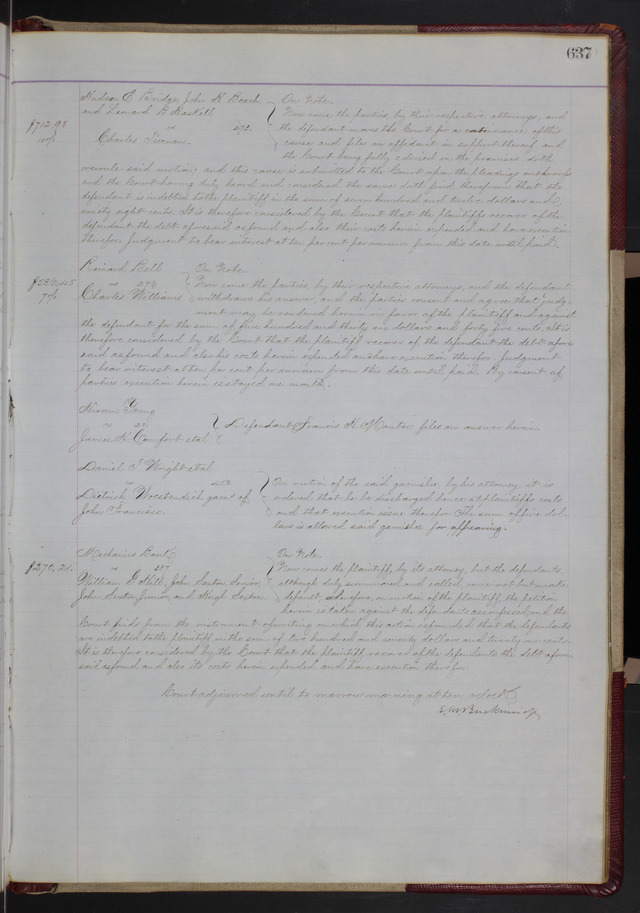 637
Hudson E Bridge, John H Beach
and Leonard B
vs 272
Charles Tiernan
$712.98
10%
On Note.
Now come the parties, by their respective attorneys, and
the defendant moves the Court for a continuance of this
cause and files an affidavit in support thereof, and
the Court being fully advised in the premises doth
overrule said motion; and this cause is submitted to the Court upon the pleadings and proofs
and the Court having duly heard and considered the same doth find therefrom that the
defendant is indebted to the plaintiff in the sum of seven hundred and twelve dollars and
ninety eight cents. It is therefore considered by the Court that the plaintiffs recover of the
defendant the debt aforesaid as found and also their costs herein expended and have execution
therefor. Judgment to bear interest at ten per cent per annum from this date until paid.
Richard Bell
vs 276
Charles Williams
7%
On Note
Now come the parties, by their respective attorneys, and the defendant
withdraws his answer, and the parties consent and agree that judg-
ment may be rendered herein in favor of the plaintiff and against
the defendant for the sum of five hundred and thirty six dollars and forty five cents. It is
therefore considered by the Court that the plaintiff recover of the defendant the debt afore
said as found and also his costs herein expended and have execution therefor. Judgment
to bear interest at ten per cent per annum from this date until paid. By consent of
parties execution herein is stayed one month.
Hiram Young
vs
James H Comfort et al
Defendant Francis H Manter files an answer herein.
Daniel T Wright et al
vs
Dietrich garn't of
John Francisco.
On motion of the said garnishee, by his attorney, it is
ordered that he be discharged hence at plaintiffs costs
and that execution issue therefor. The sum of five dol-
lars is allowed said garnishee for appearing.
Mechanics Bank
vs
William G Hill, John Sexton Senior,
John Sexton Junior, and Hugh Sexton.
$270.21.
On Note.
Now comes the plaintiff, by its attorney, but the defendants,
although duly summoned and called, come not but make
default, wherefore, on motion of the plaintiff, the petition
herein is taken against the defendants as confessed, and the
Court finds from the instrument of writing on which this action is founded that the defendants
are indebted to the plaintiff in the sum of two hundred and seventy dollars and twenty one cents.
It is therefore considered by the Court that the plaintiff recover of the defendants the debt afore
said as found and also its costs herein expended and have execution therefor.
Court adjourned until to morrow morning at ten oclock